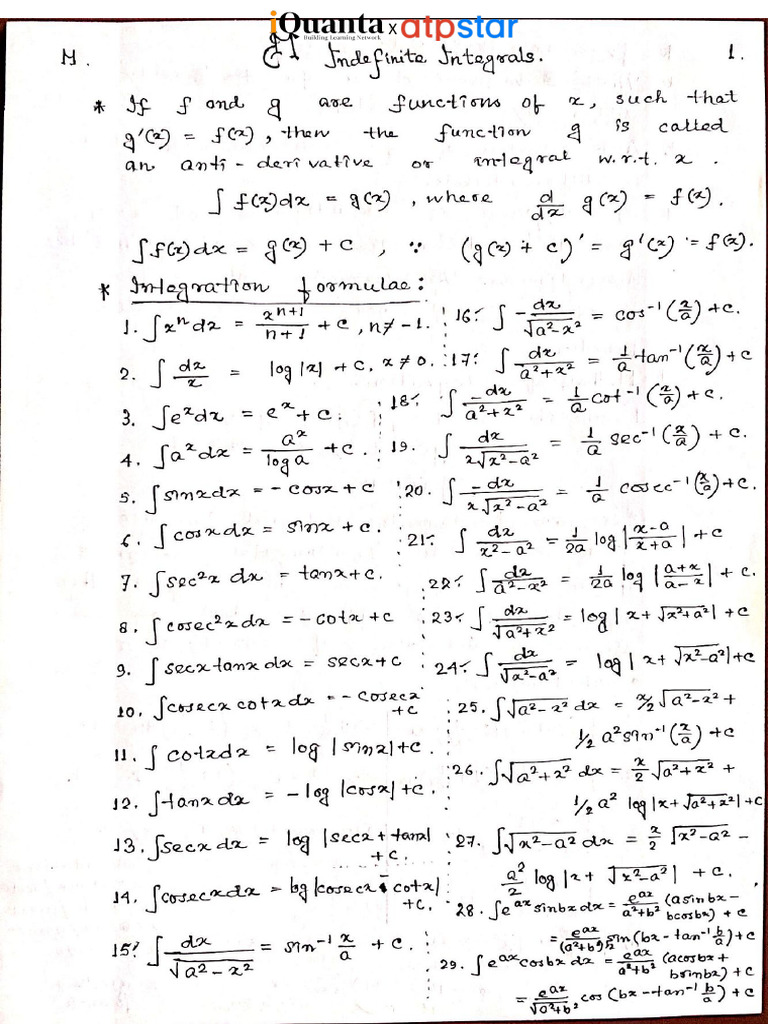 iQuanta x atpstar
Building Learning Network
M. Indefinite Integrals. 1.
* If f and g are functions of x, such that
g'(x) = f(x), then the function g is called
an anti-derivative or integral w.r.t. x.
∫ f(x)dx = g(x), where d/dx g(x) = f(x).
∫f(x)dx = g(x) + c, ∵ (g(x) + c)' = g'(x) = f(x).
* Integration formulae:
1. ∫xⁿdx = xⁿ⁺¹/n+1 + c, n≠-1.
2. ∫ dx/x = log|x| + c, x≠0.
3. ∫eˣdx = eˣ + c.
4. ∫aˣdx = aˣ/log a + c.
5. ∫sinx dx = -cosx + c
6. ∫cosx dx = sinx + c.
7. ∫sec²x dx = tanx + c.
8. ∫cosec²x dx = -cotx + c
9. ∫secx tanx dx = secx + c
10. ∫cosecx cotx dx = -cosecx
+c
11. ∫cotx dx = log|sinx| + c.
12. ∫tanx dx = -log|cosx| + c.
13. ∫secx dx = log|secx + tanx|
+c.
14. ∫cosecx dx = log|cosecx - cotx|
+c.
15. ∫ dx/√a²-x² = sin⁻¹ x/a + c.
16. ∫ -dx/√a²-x² = cos⁻¹(x/a) + c.
17. ∫ dx/a²+x² = 1/a tan⁻¹(x/a) + c
18. ∫ -dx/a²+x² = 1/a cot⁻¹(x/a) + c.
19. ∫ dx/x√x²-a² = 1/a sec⁻¹(x/a) + c.
20. ∫ -dx/x√x²-a² = 1/a cosec⁻¹(x/a) + c.
21. ∫ dx/x²-a² = 1/2a log|x-a/x+a| + c
22. ∫ dx/a²-x² = 1/2a log|a+x/a-x| + c.
23. ∫ dx/√a²+x² = log|x + √x²+a²| + c
24. ∫ dx/√x²-a² = log|x + √x²-a²| + c
25. ∫√a²-x² dx = x/2 √a²-x² +
1/2 a² sin⁻¹(x/a) + c
26. ∫√a²+x² dx = x/2 √a²+x² +
1/2 a² log|x + √a²+x²| + c
27. ∫√x²-a² dx = x/2 √x²-a² -
a²/2 log|x + √x²-a²| + c.
28. ∫eᵃˣ sinbx dx = eᵃˣ/a²+b² (a sinbx -
b cosbx) + c
= eᵃˣ/(a²+b²)½ sin(bx - tan⁻¹ b/a) + c
29. ∫eᵃˣ cosbx dx = eᵃˣ/a²+b² (a cosbx +
b sinbx) + c
= eᵃˣ/√a²+b² cos(bx - tan⁻¹ b/a) + c